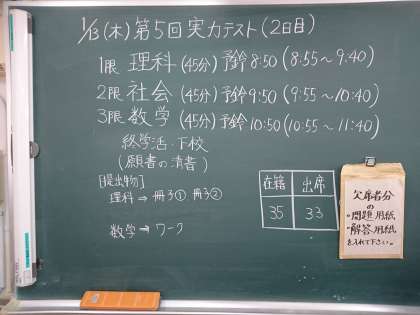 1/13(木)第5回実力テスト(2日目)
1限 理科(45分)予鈴8:50(8:55〜9:40)
2限 社会(45分)予鈴9:50(9:55〜10:40)
3限 数学(45分)予鈴10:50(10:55〜11:40)
終学活・下校
(願書の清書)
[提出物]
理科→冊子① 冊子②
数学→ワーク
在籍 出席
35 33
欠席者分
の
・問題用紙
・解答用紙
を入れて下さい。